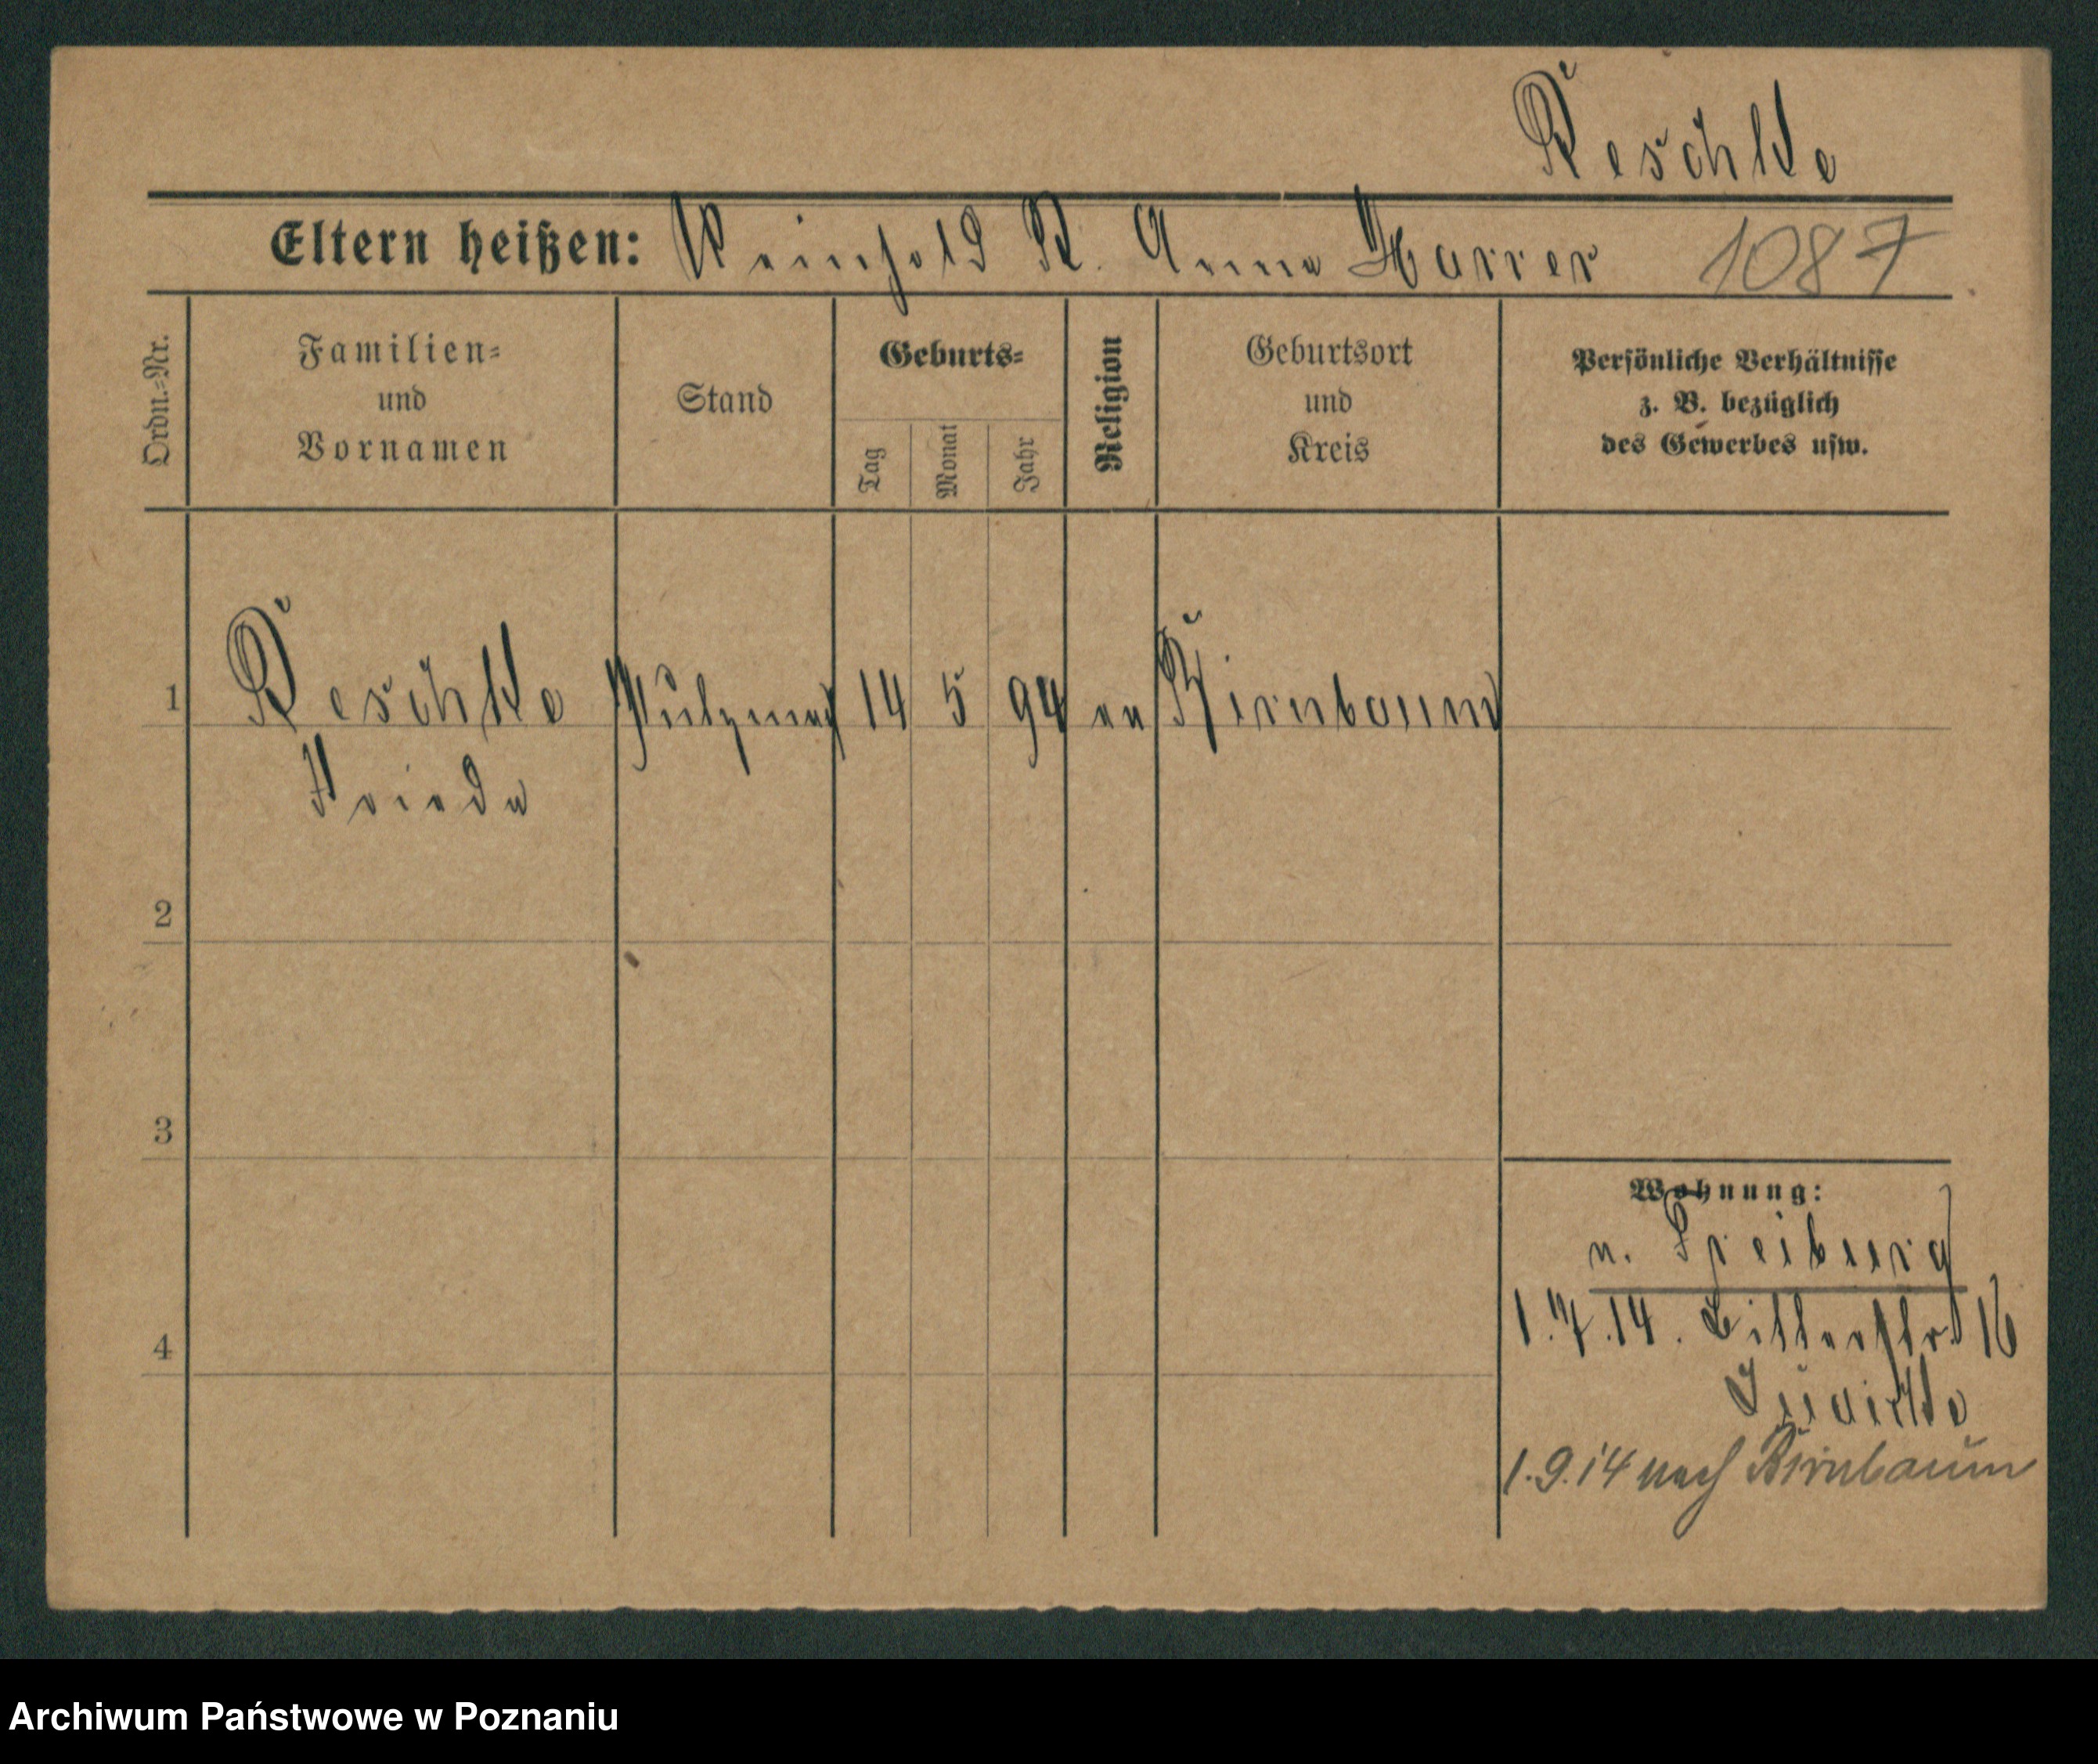 Reschke
Eltern heißen: Reinhold R. Anna Harrer 1087
Ordn.-Nr.
Familien-
und
Vornamen
Stand
Geburts-
Tag
Monat
Jahr
Religion
Geburtsort
und
Kreis
Persönliche Verhältnisse
z. B. bezüglich
des Gewerbes usw.
1 Reschke Putzmach 14 5 94 ev Birnbaum
Frieda
2
3
4
Wohnung:
n. Freiburg
1.7.14. Ritterstr 16
1.9.14 nach Birnbaum
Archiwum Państwowe w Poznaniu